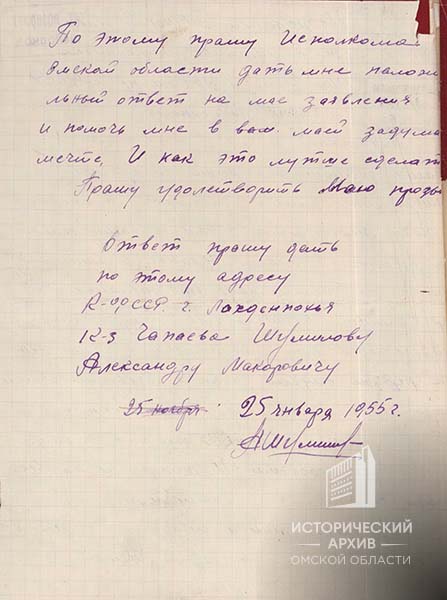 По этому прашу Исполкома
Омской области дать мне полож
ельный ответ на мое заявления
и помочь мне в вам. маей задума
мечте, И как это лутше сделат
Прашу удолетворить Маю прозьб
Ответ прашу дать
по этому адресу
К-ФССР. г. Лахденпохья
К-з Чапаева Шумилову
Александру Макаровичу
25 ноября 25 января 1955 г.
АШумилов
ИСТОРИЧЕСКИЙ
АРХИВ
ОМСКОЙ ОБЛАСТИ